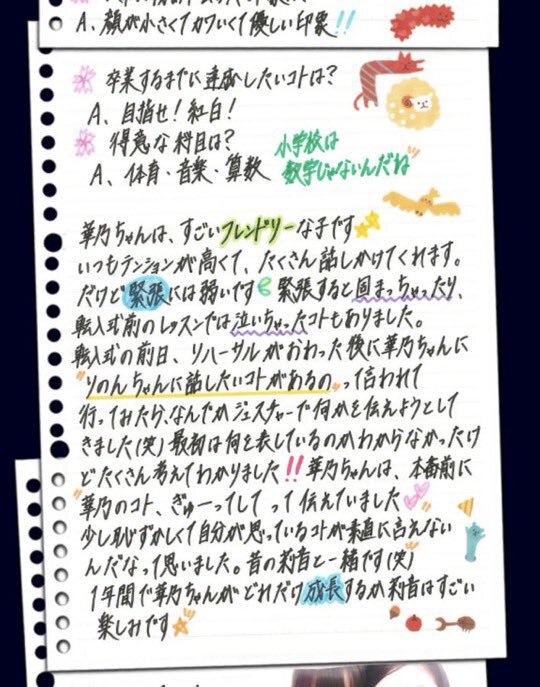 A、顔が小さくてカワいくて優しい印象!!
卒業するまでに達成したいコトは?
A、目指せ!紅白!
得意な科目は?
A、体育・音楽・算数
小学校は
数学じゃないんだね"
華乃ちゃんは、すごいフレンドリーな子です
いつもテンションが高くて、たくさん話しかけてくれます。
だけど緊張には弱いです 緊張すると固まっちゃったり、
転入式前のレッスンでは泣いちゃったコトもありました。
転入式の前日、リハーサルがおわった後に華乃ちゃんに
"りのんちゃんに話したいコトがあるの"って言われて
行っておたら、なんでかジェスチャーで何かを伝えようとして
きました(笑)最初は何を表しているのかわからなかったけ
どたくさん考えてわかりました!!華乃ちゃんは、本番前に
"華乃のコト、ぎゅーってして"って伝えていました
少し恥ずかしくて自分が思っているコトが素直に言えない
んだなって思いました。昔の莉音と一緒です(笑)"
1年間で華乃ちゃんがどれだけ成長するか莉音はすごい
楽しみです